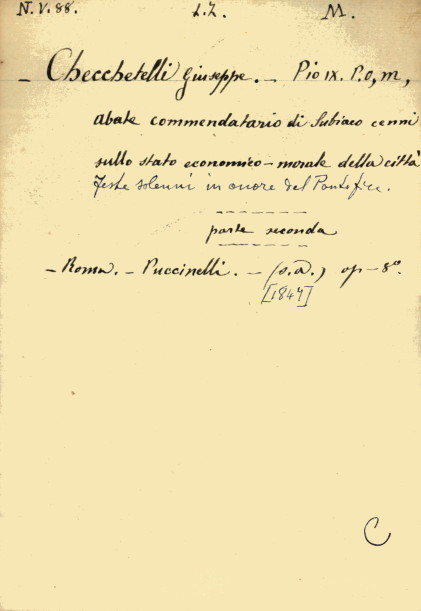 N. V. 88. L. Z. M.
– Checchetelli Giuseppe. – Pio IX. P. O, M,
abate commendatario di Subiaco cenni
sullo stato economico – morale della città
Feste solenni in onore del Pontefice.
parte seconda
– Roma. – Puccinelli. – (s. a.) op – 8º.
[1847]
C